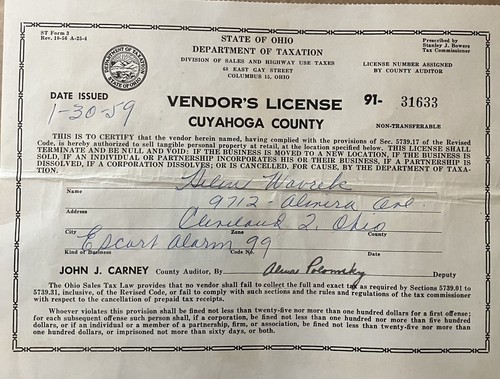 ST Form 3
Rev. 10-56 A-25-4
STATE OF OHIO
DEPARTMENT OF TAXATION
DIVISION OF SALES AND HIGHWAY USE TAXES
68 EAST GAY STREET
COLUMBUS 15, OHIO
Prescribed by
Stanley J. Bowers
Tax Commissioner
LICENSE NUMBER ASSIGNED
BY COUNTY AUDITOR
DEPARTMENT OF TAXATION
STATE OF OHIO
DATE ISSUED
1-30-59
VENDOR'S LICENSE
CUYAHOGA COUNTY
91- 31633
NON-TRANSFERABLE
THIS IS TO CERTIFY that the vendor herein named, having complied with the provisions of Sec. 5739.17 of the Revised
Code, is hereby authorized to sell tangible personal property at retail, at the location specified below. THIS LICENSE SHALL
TERMINATE AND BE NULL AND VOID: IF THE BUSINESS IS MOVED TO A NEW LOCATION, IF THE BUSINESS IS
SOLD, IF AN INDIVIDUAL OR PARTNERSHIP INCORPORATES HIS OR THEIR BUSINESS, IF A PARTNERSHIP IS
DISSOLVED, IF A CORPORATION DISSOLVES; OR IS CANCELLED, FOR CAUSE, BY THE DEPARTMENT OF TAXA-
TION.
Helen
Name
9712- Almira Ave.
Address
Cleveland 2, Ohio
City Zone County
Escort Alarm 99
Kind of Business Code No. Date
JOHN J. CARNEY County Auditor, By Deputy
The Ohio Sales Tax Law provides that no vendor shall fail to collect the full and exact tax as required by Sections 5739.01 to
5739.31, inclusive, of the Revised Code, or fail to comply with such sections and the rules and regulations of the tax commissioner
with respect to the cancellation of prepaid tax receipts.
Whoever violates this provision shall be fined not less than twenty-five nor more than one hundred dollars for a first offense;
for each subsequent offense such person shall, if a corporation, be fined not less than one hundred nor more than five hundred
dollars, or if an individual or a member of a partnership, firm, or association, be fined not less than twenty-five nor more than
one hundred dollars, or imprisoned not more than sixty days, or both.